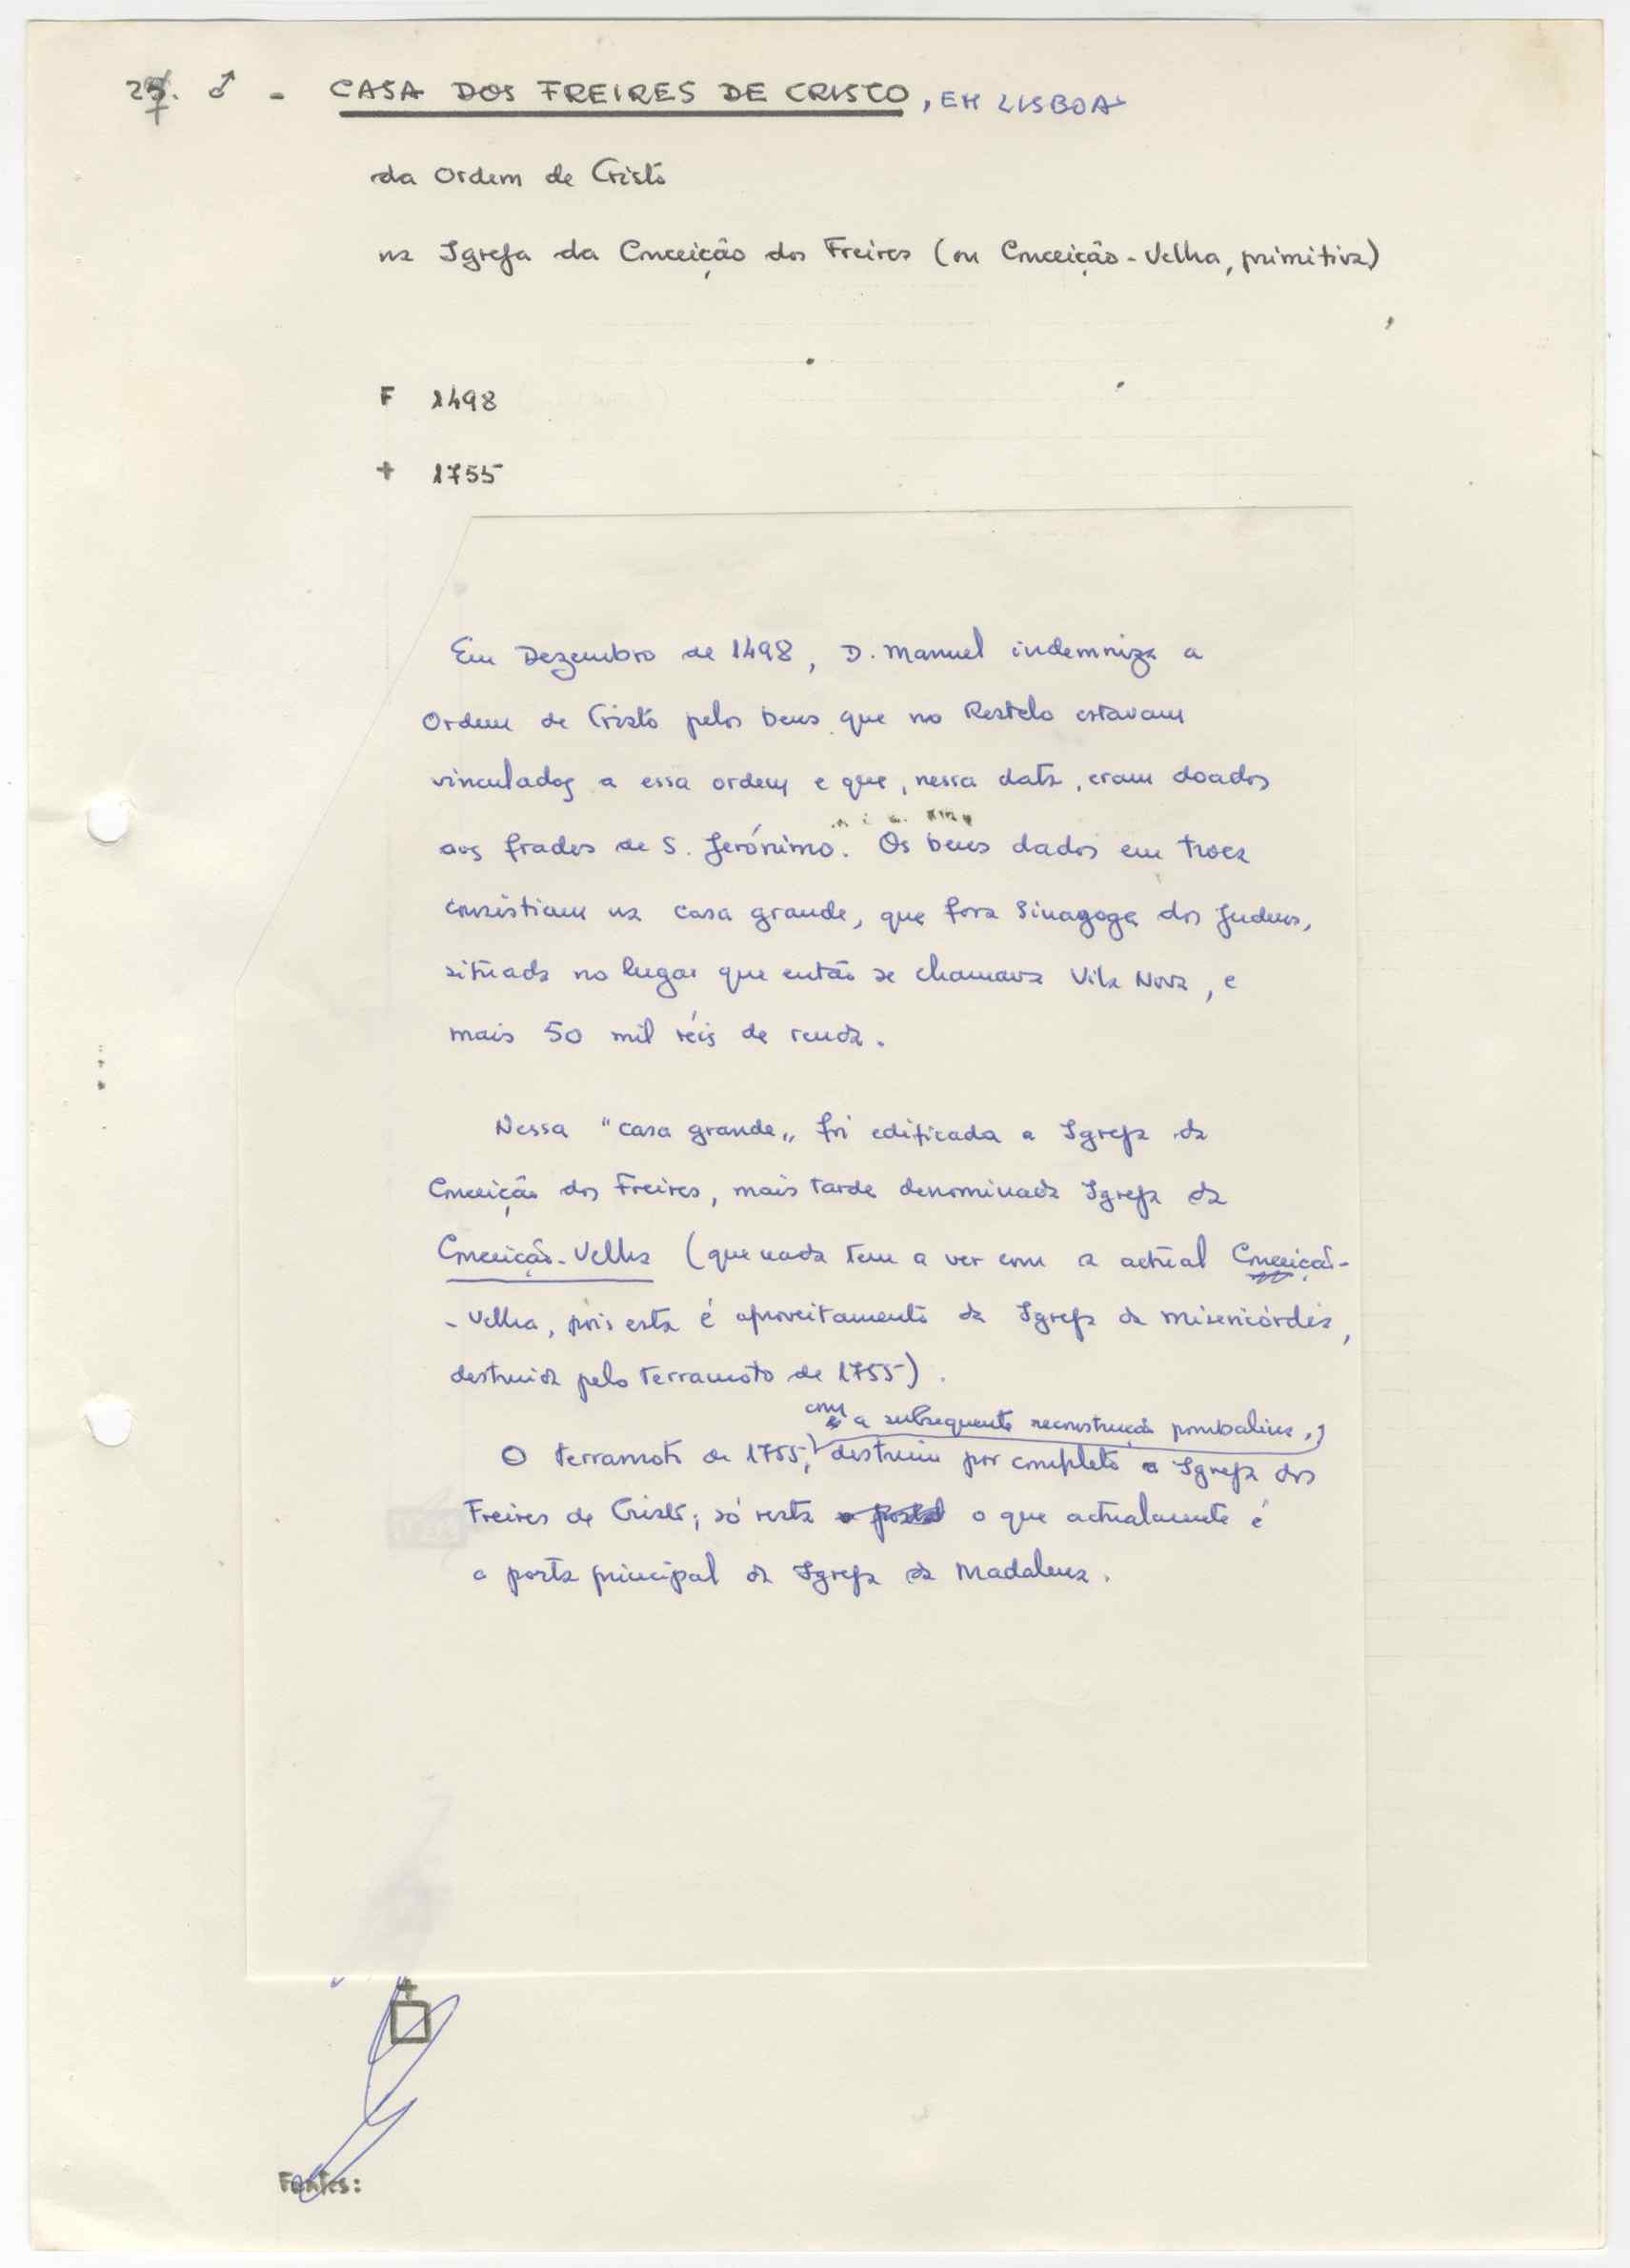 27. ♂ - CASA DOS FREIRES DE CRISTO, EM LISBOA
da Ordem de Cristo
na Igreja da Conceição dos Freires (ou Conceição-Velha, primitiva)
F 1498
+ 1755
Em Dezembro de 1498, D. Manuel indemniza a
Ordem de Cristo pelos bens que no Restelo estavam
vinculados a essa ordem e que, nessa data, eram doados
aos frades de S. Jerónimo. Os bens dados em troca
consistiam na casa grande, que fora Sinagoga dos Judeus,
situada no lugar que então se chamava Vila Nova, e
mais 50 mil réis de renda.
Nessa "casa grande" foi edificada a Igreja da
Conceição dos Freires, mais tarde denominada Igreja da
Conceição-Velha (que nada tem a ver com a actual Conceição-
-Velha, pois esta é aproveitamento da Igreja da Misericórdia,
destruida pelo terramoto de 1755).
com a subsequente reconstrução pombalina,
O terramoto de 1755, destruiu por completo a Igreja dos
Freires de Cristo; só resta o que actualmente é
a porta principal da Igreja da Madalena.
Fontes: